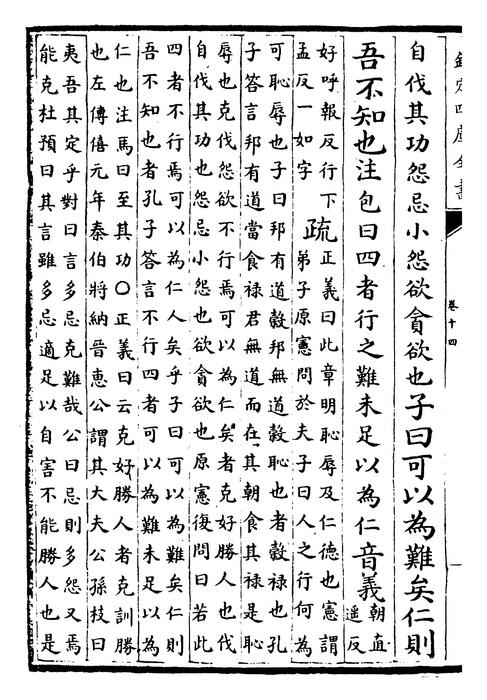 欽定四庫全書
卷十四
自伐其功怨忌小怨欲貪欲也子曰可以為難矣仁則
吾不知也注包曰四者行之難未足以為仁音義朝直
遥反
好呼報反行下
孟反一如字
疏
正義曰此章明恥辱及仁德也憲謂
弟子原憲問於夫子曰人之行何為
可恥辱也子曰邦有道穀邦無道穀恥也者穀禄也孔
子答言邦有道當食禄君無道而在其朝食其禄是恥
辱也克伐怨欲不行焉可以為仁矣者克好勝人也伐
自伐其功也怨忌小怨也欲貪欲也原憲復問曰若此
四者不行焉可以為仁人矣乎子曰可以為難矣仁則
吾不知也者孔子答言不行四者可以為難未足以為
仁也注馬曰至其功○正義曰云克好勝人者克訓勝
也左傳僖元年秦伯將納晉惠公謂其大夫公孫枝曰
夷吾其定乎對曰言多忌克難哉公曰忌則多怨又焉
能克杜預曰其言雖多忌適足以自害不能勝人也是